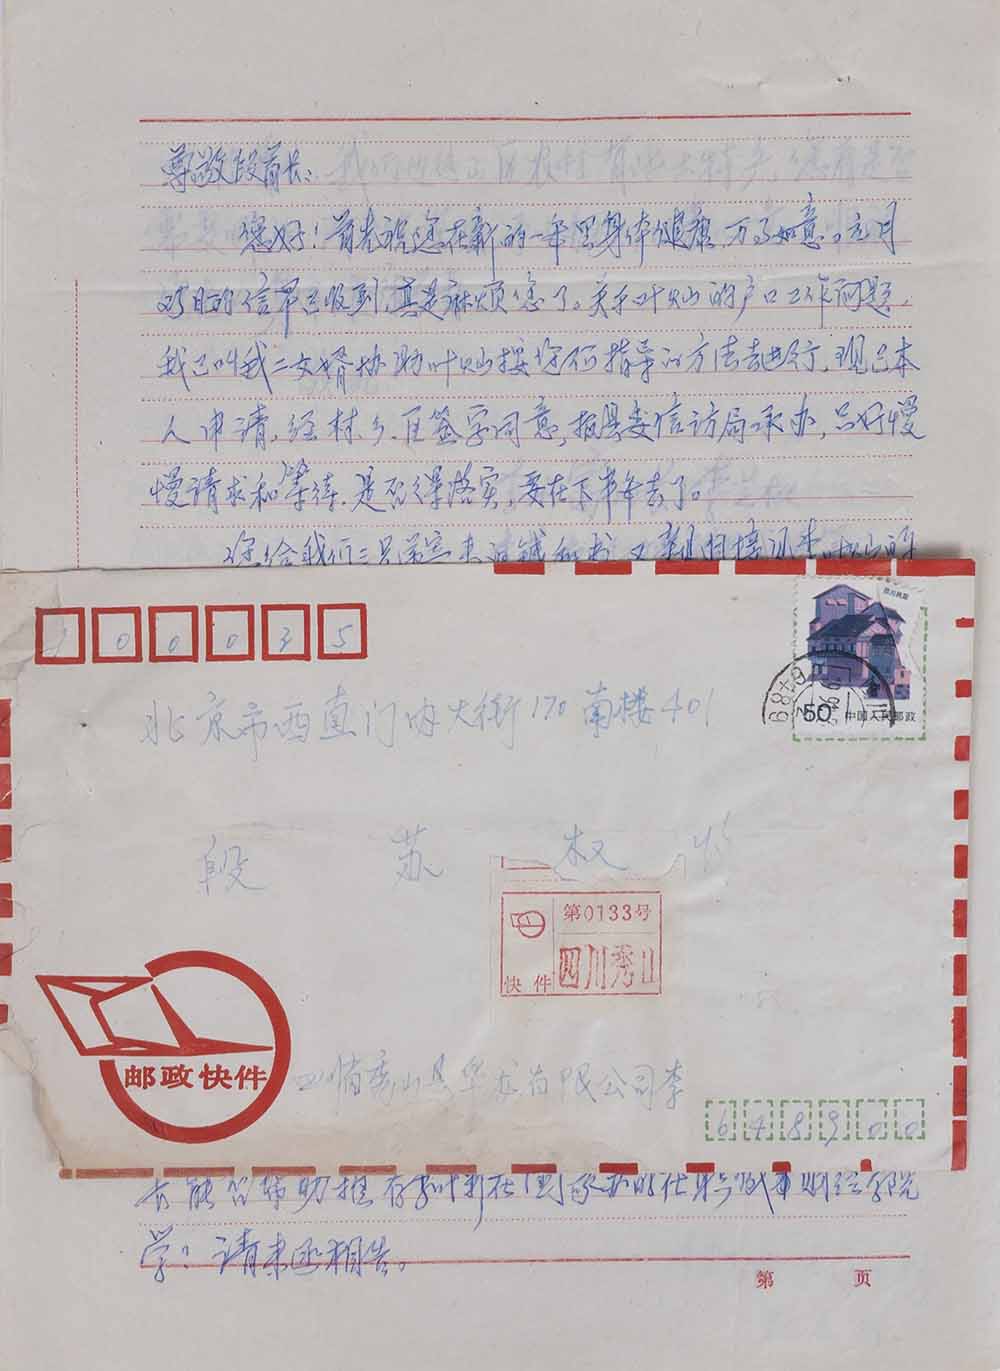 尊敬段首长：
您好！首先祝您在新的一年里身体健康，万事如意。元月
的信早已收到，真是麻烦您了。关于叶灿的户口工作问题，
我已叫我二女婿协助叶灿按你们指导的方法去进行，现已本
人申请，经村、乡、区签字同意，报县委信访局承办，只好慢
慢请求和等待，是否得落实，要在下半年去了。
您给我们
100035
50 中国人民邮政
北京市西直门内大街170南楼401
段苏权
第0133号
快件 四川秀山
邮政快件
四川省秀山县华龙有限公司李
648900
学？请来函相告。
第 页